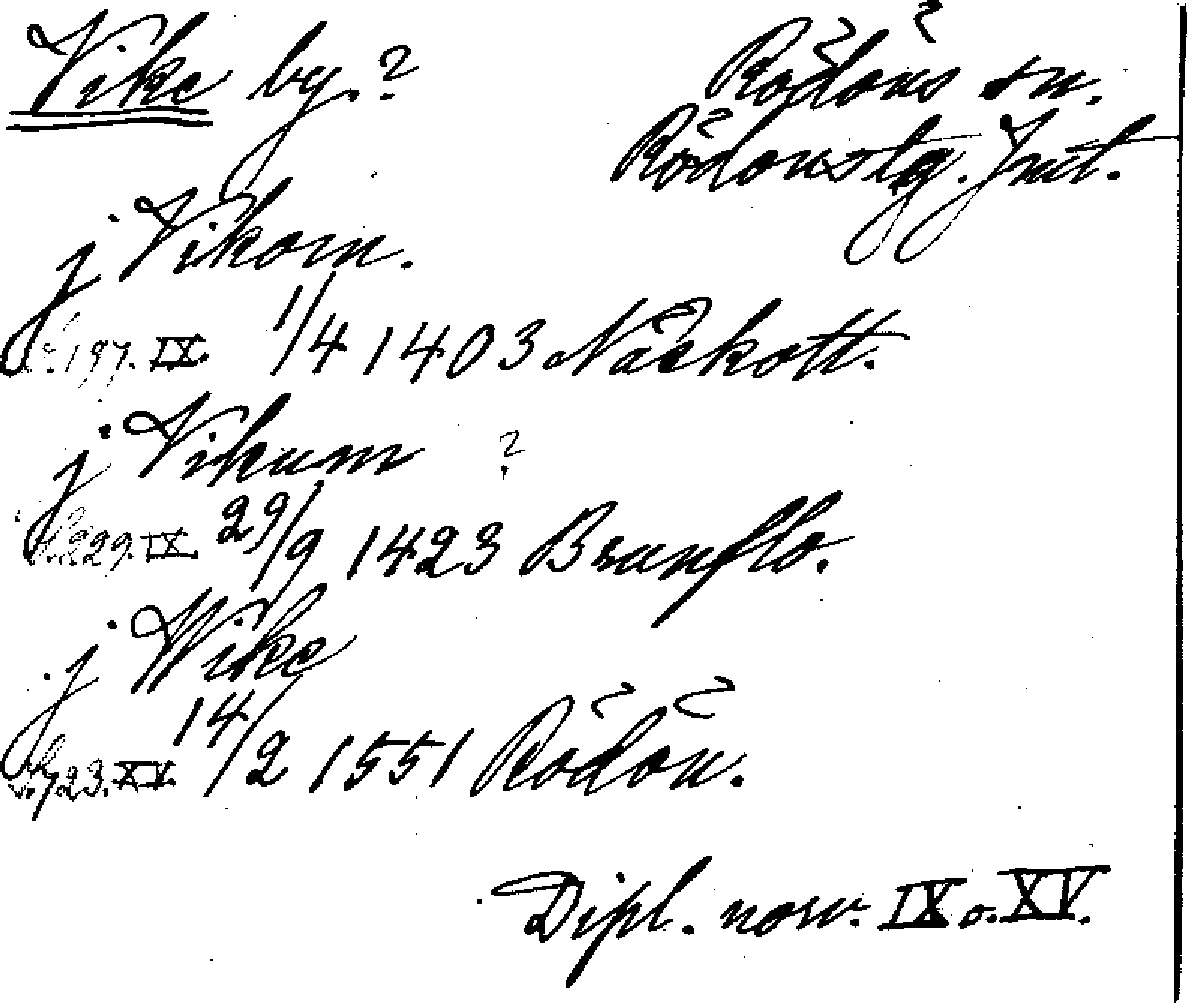 Vike by.?
Rödöns sn.
Rödönstg. Jmt.
j Vikom.
s. 197. IX. 1/4 1403 Näskott.
j Vikum ?
s. 229. IX. 29/9 1423 Brunflo.
j Wike
s. 723. XV. 14/2 1551 Rödön.
Dipl. norv. IX o. XV.